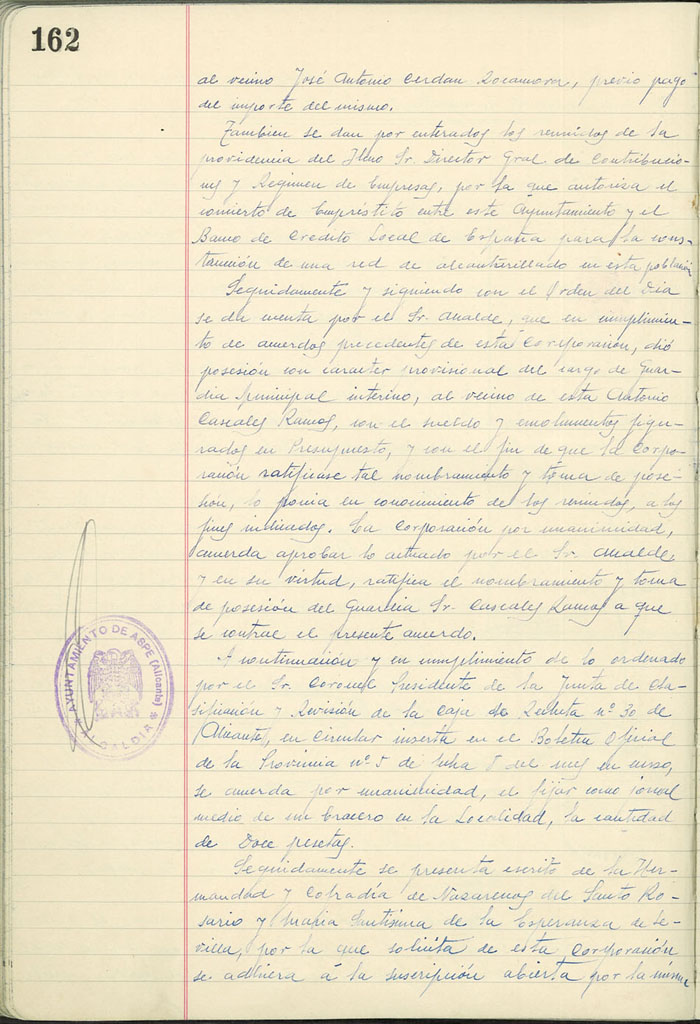 162
al vecino José Antonio Cerdan Rocamora, previo pago
del importe del mismo.
Tambien se dan por enterados los reunidos de la
providencia del Iltmo Sr. Director Gral. de Contribucio-
nes y Regimen de Empresas, por la que autoriza el
concierto de Empréstito entre este Ayuntamiento y el
Banco de Credito Local de España para la cons-
trucción de una red de alcantarillado en esta población
Seguidamente y siguiendo con el Orden del Dia
se da cuenta por el Sr. Alcalde, que en cumplimien-
to de acuerdos precedentes de esta Corporación, dió
posesión con caracter provisional del cargo de Guar-
dia Municipal interino, al vecino de esta Antonio
Cascales Ramos, con el sueldo y emolumentos figu-
rados en Presupuesto, y con el fin de que la Corpo-
ración ratificase tal nombramiento y toma de pose-
sión, lo ponia en conocimiento de los reunidos, a los
fines indicados. La Corporación por unanimidad,
acuerda aprobar lo actuado por el Sr. Alcalde,
y en su virtud, ratifica el nombramiento y toma
de posesión del Guardia Sr. Cascales Ramos a que
se contrae el presente acuerdo.
A continuación y en cumplimiento de lo ordenado
por el Sr. Coronel Presidente de la Junta de Cla-
sificación y Revisión de la Caja de Recluta nº 30 de
Alicante, en Circular inserta en el Boletin Oficial
de la Provincia nº 5 de fecha 8 del mes en curso,
se acuerda por unanimidad, el fijar como jornal
medio de un bracero en la Localidad, la cantidad
de Doce pesetas.
Seguidamente se presenta escrito de la Her-
mandad y Cofradía de Nazarenos del Santo Ro-
sario y Maria Santisima de la Esperanza de Se-
villa, por la que solicita de esta Corporación
se adhiera á la suscripción abierta por la misma
AYUNTAMIENTO DE ASPE (Alicante)
ALCALDIA